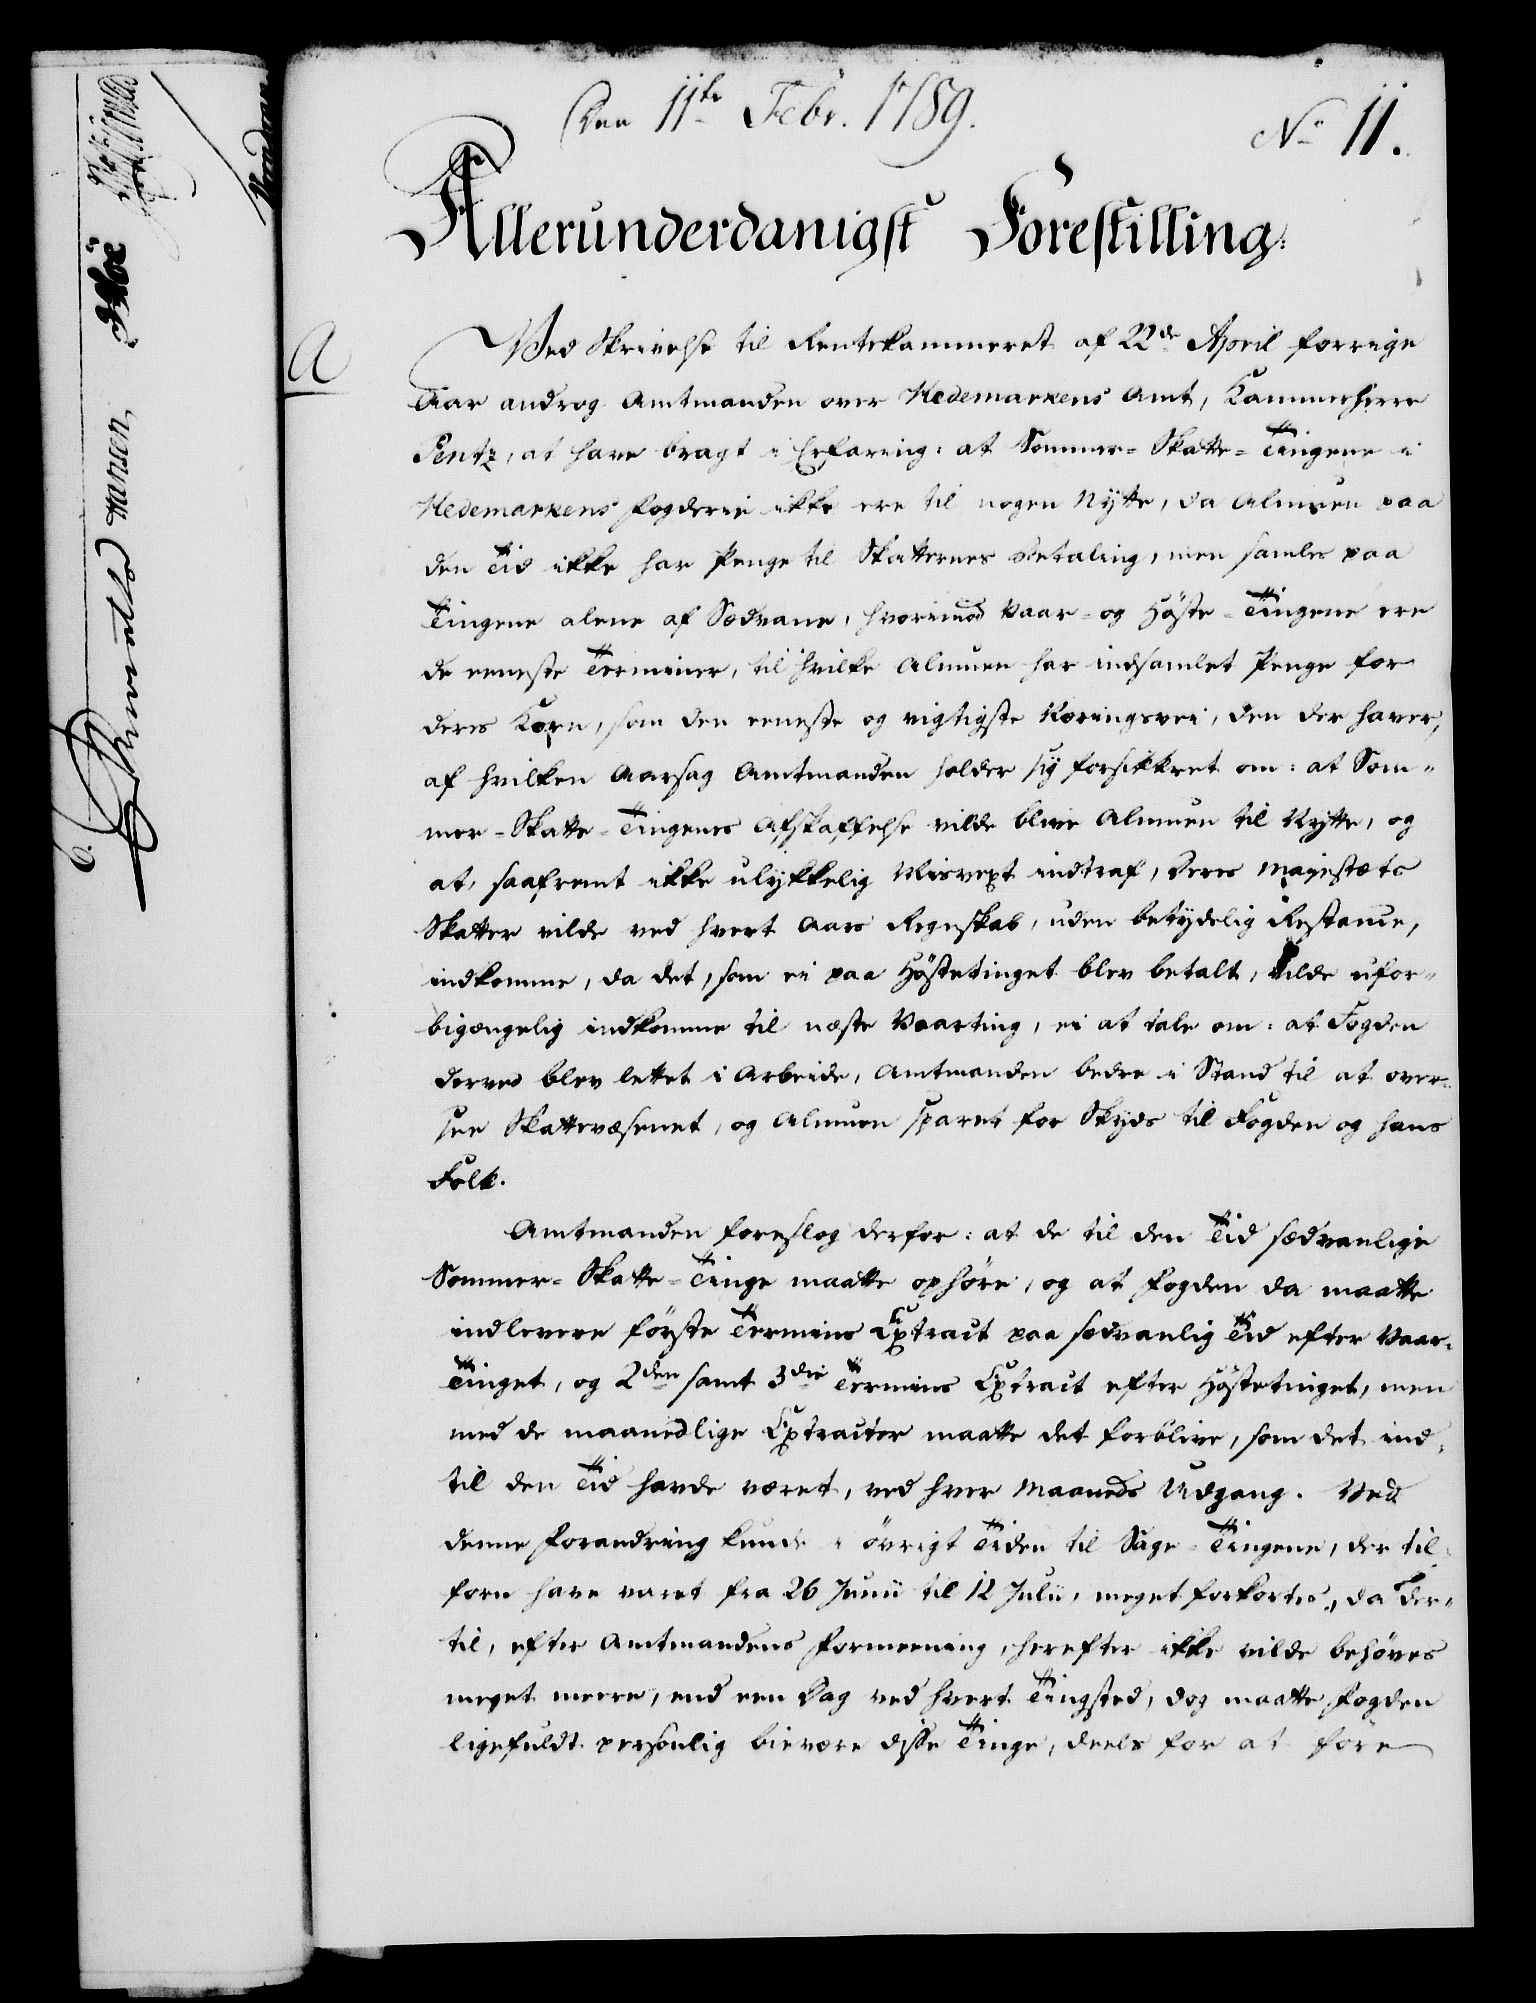 Den 11te Febr. 1789.
No 11.
Allerunderdanigst Forestilling:
A
Ved Skrivelse til Rentekammeret af 22de April forrige
Aar androg Amtmanden over Hedemarkens Amt, Kammerherre
Pentz, at have bragt i Erfaring: at Sommer-Skatte-Tingene i
Hedemarkens Fogderie ikke ere til nogen Nytte, da Almuen paa
den Tid ikke har Penge til Skatternes Betaling, men samles paa
Tingene alene af Sædvane, hvorimod Vaar- og Høste-Tingene ere
de eeneste Terminer, til hvilke Almuen har indsamlet Penge for
deres Korn, som den eeneste og vigtigste Næringsvei, den der haver,
af hvilken Aarsag Amtmanden holder sig forsikkret om: at Som-
mer-Skatte-Tingenes Afskaffelse vilde blive Almuen til Nytte, og
at, saafremt ikke ulykkelig Misvext indtraf, Deres Majestæts
Skatter vilde ved hvert Aars Regnskab, uden betydelig Restance,
indkomme, da det, som ei paa Høstetinget blev betalt, vilde ufor-
bigængelig indkomme til næste Vaarting, ei at tale om: at Fogden
derved blev lettet i Arbeide, Amtmanden bedre i Stand til at over-
see Skattevæsenet, og Almuen sparet for Skyds til Fogden og hans
Folk.
Amtmanden foreslog derfor: at de til den Tid sædvanlige
Sommer-Skatte-Tinge maatte ophøre, og at Fogden da maatte
indlevere første Termins Extract paa sædvanlig Tid efter Vaar-
Tinget, og 2den samt 3die Termins Extract efter Høstetinget, men
med de maanedlige Extracter maatte det forblive, som det ind-
til den Tid havde været, ved hver Maaneds Udgang. Ved
denne Forandring kunde i øvrigt Tiden til Sage-Tingene, der til-
forn have varet fra 26 Junii til 12 Julii, meget forkortes, da der-
til, efter Amtmandens Formeening, herefter ikke vilde behøves
meget meere, end een Dag ved hvert Tingsted, dog maatte Fogden
ligefuldt personlig bievære disse Tinge, deels for at føre